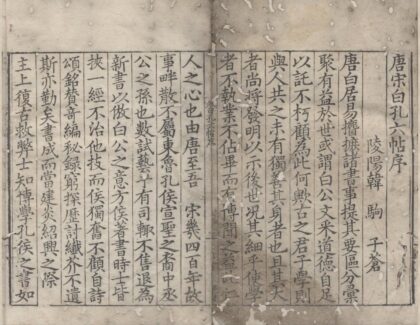 唐宋白孔六帖序
陵陽韓 駒 子蒼
唐白居易攟摭諸書事提其要區分彙
聚有益於世或謂白公文米道德自足
以託不朽顧為此何歟古之君子學則
與人共之未有獨善其身者也且其大
者尚將發明以示後世況其細乎使學
者不執業不佔畢而有博聞之益此
人之心也由唐至吾 宋幾四百年故
事畔散不屬東魯孔侯宣聖之裔中丞
公之孫也數試藝于有司輙不售退為
新書以倣白公之意方侯著書時士皆
挾一經不治他技而侯獨奮不顧自詩
頌銘贊奇編秘錄窮探歷討纎芥不遺
斯亦勤矣書成而當建炎紹興之際
主上復古救弊士知博學孔侯之書如